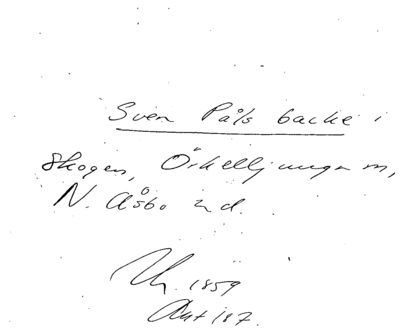 Sven Påls backe i
Skogen, Örkelljunga m,
N. Åsbo hd.
1859
Ant 187.